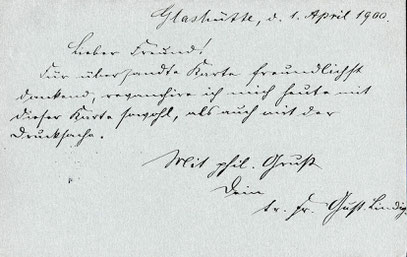 Glashütte, d. 1. April 1900.
Lieber Freund!
Für übersandte Karte freundlichst
dankend, revanchire ich mich heute mit
dieser Karte sowohl, als auch mit der
Drucksache.
Mit phil. Gruß
Dein
tr. Fr. Gust. Lindig